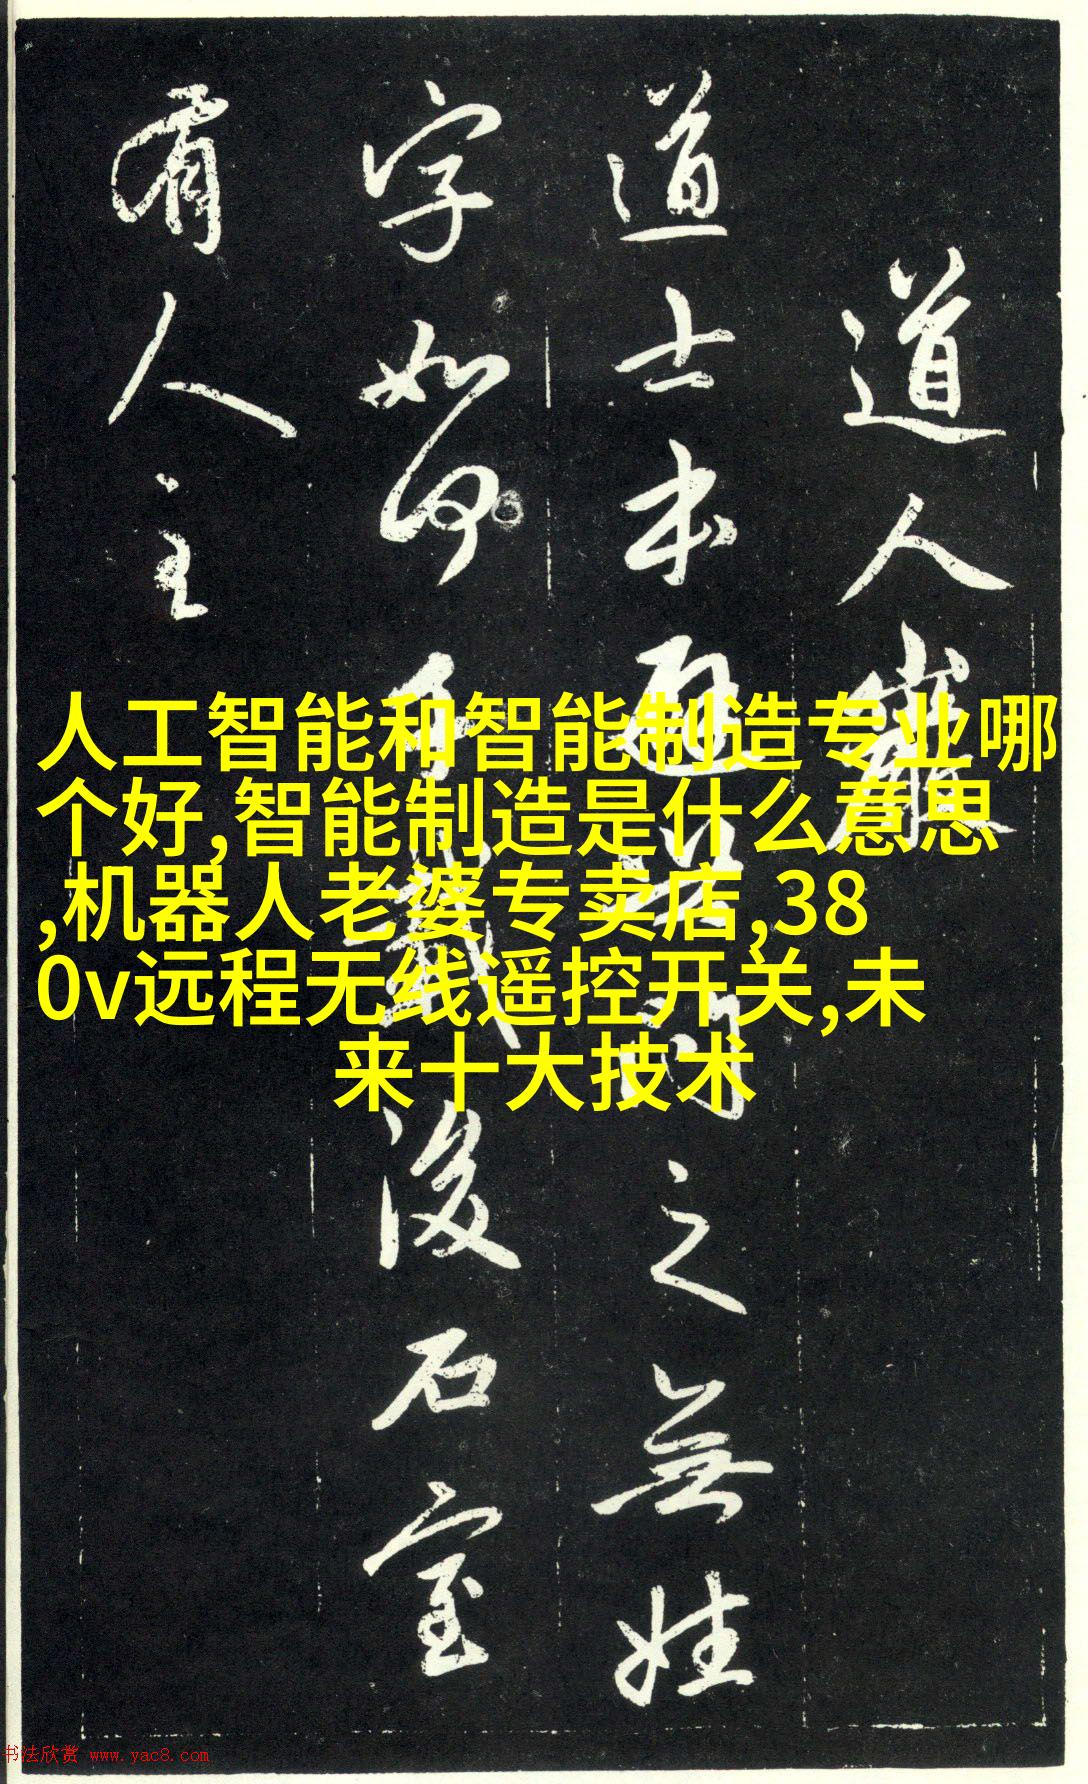 道人巖
道士本之無姓
字如何千載後石室
有人主
人工智能和智能制造专业哪
个好,智能制造是什么意思
,机器人老婆专卖店,38
0v远程无线遥控开关,未
来十大技术
书法欣赏 www.yac8.com